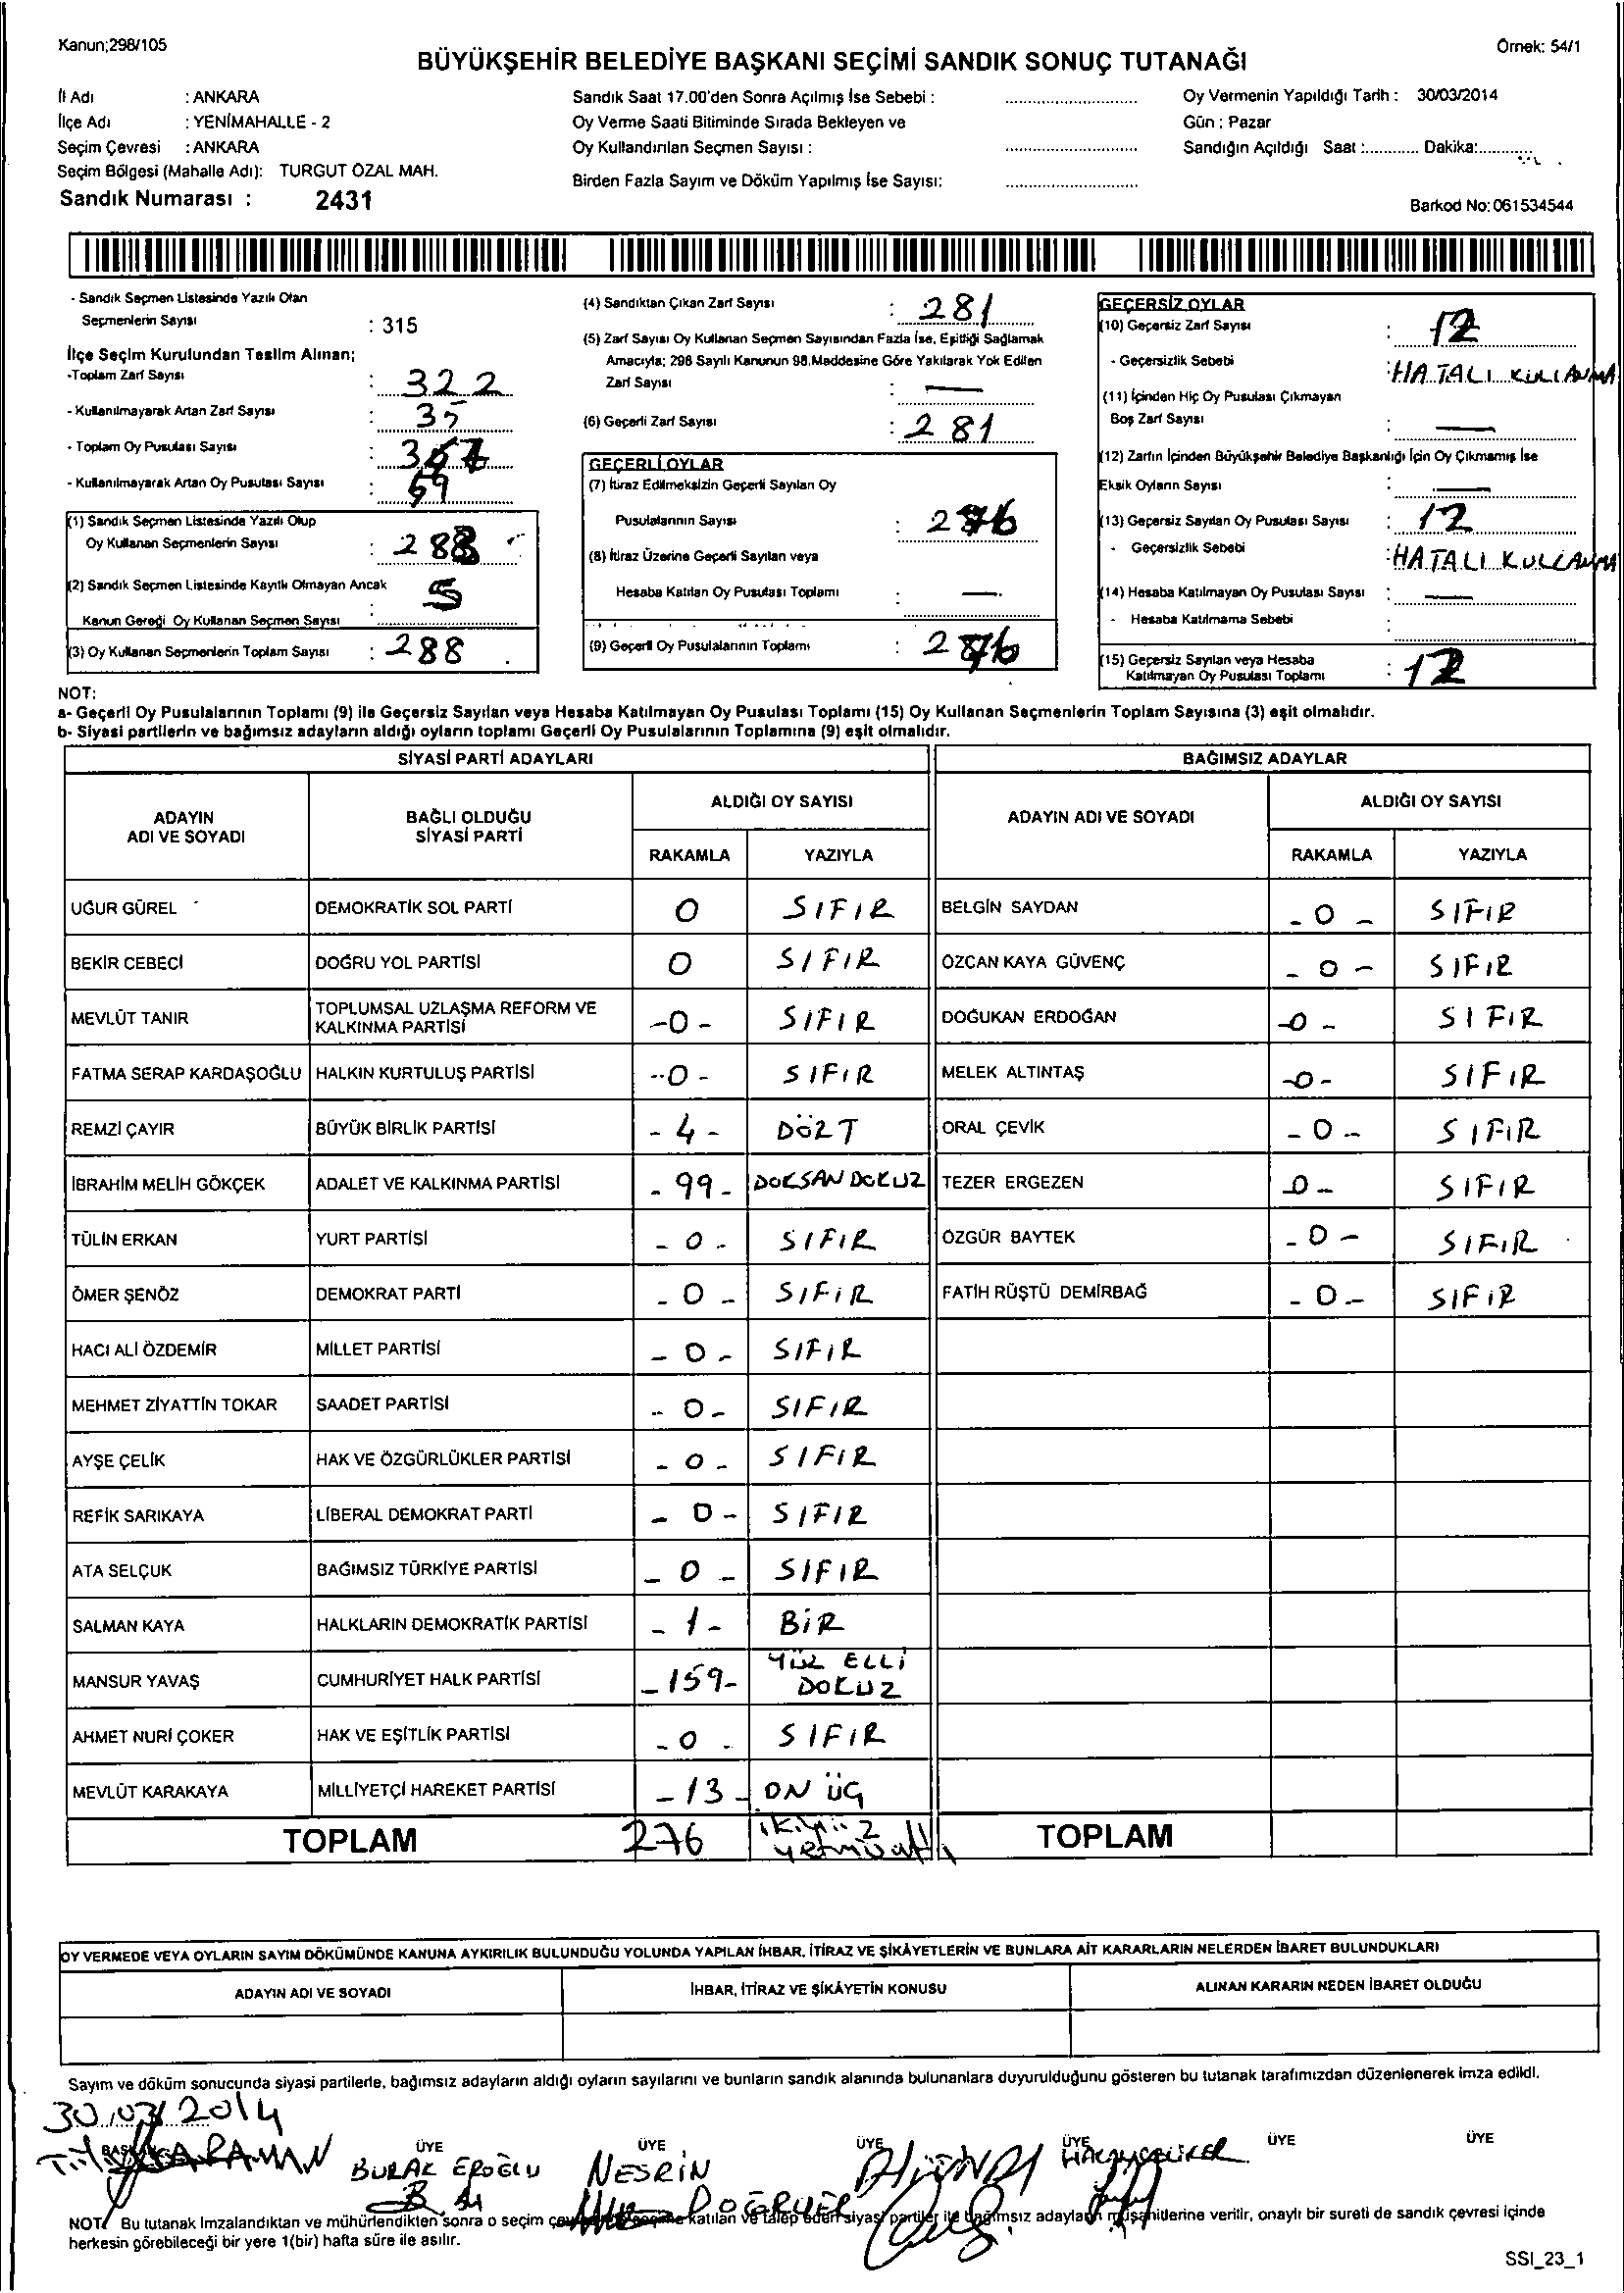 Kanun;298/105
Örnek: 54/1
BÜYÜKŞEHİR BELEDİYE BAŞKANI SEÇİMİ SANDIK SONUÇ TUTANAĞI
İl Adı : ANKARA
İlçe Adı : YENİMAHALLE - 2
Seçim Çevresi : ANKARA
Seçim Bölgesi (Mahalle Adı): TURGUT ÖZAL MAH.
Sandık Numarası : 2431
Sandık Saat 17.00'den Sonra Açılmış İse Sebebi :
Oy Verme Saati Bitiminde Sırada Bekleyen ve
Oy Kullandırılan Seçmen Sayısı :
Birden Fazla Sayım ve Döküm Yapılmış İse Sayısı:
Oy Vermenin Yapıldığı Tarih : 30/03/2014
Gün : Pazar
Sandığın Açıldığı Saat :............ Dakika:............
Barkod No: 061534544
- Sandık Seçmen Listesinde Yazılı Olan
Seçmenlerin Sayısı : 315
İlçe Seçim Kurulundan Teslim Alınan;
-Toplam Zarf Sayısı : 322
- Kullanılmayarak Artan Zarf Sayısı : 35
- Toplam Oy Pusulası Sayısı :
- Kullanılmayarak Artan Oy Pusulası Sayısı : 59
(1) Sandık Seçmen Listesinde Yazılı Olup
Oy Kullanan Seçmenlerin Sayısı :
(2) Sandık Seçmen Listesinde Kayıtlı Olmayan Ancak
Kanun Gereği Oy Kullanan Seçmen Sayısı : 5
(3) Oy Kullanan Seçmenlerin Toplam Sayısı : 288
(4) Sandıktan Çıkan Zarf Sayısı : 281
(5) Zarf Sayısı Oy Kullanan Seçmen Sayısından Fazla İse, Eşitliği Sağlamak
Amacıyla; 298 Sayılı Kanunun 98.Maddesine Göre Yakılarak Yok Edilen
Zarf Sayısı : —
(6) Geçerli Zarf Sayısı : 281
GEÇERLİ OYLAR
(7) İtiraz Edilmeksizin Geçerli Sayılan Oy
Pusulalarının Sayısı : 276
(8) İtiraz Üzerine Geçerli Sayılan veya
Hesaba Katılan Oy Pusulası Toplamı : —
(9) Geçerli Oy Pusulalarının Toplamı : 276
GEÇERSİZ OYLAR
(10) Geçersiz Zarf Sayısı : 12
- Geçersizlik Sebebi : HATALI KULLANMA
(11) İçinden Hiç Oy Pusulası Çıkmayan
Boş Zarf Sayısı : —
(12) Zarfın İçinden Büyükşehir Belediye Başkanlığı İçin Oy Çıkmamış İse
Eksik Oyların Sayısı : —
(13) Geçersiz Sayılan Oy Pusulası Sayısı : 12
- Geçersizlik Sebebi : HATALI KULLANMA
(14) Hesaba Katılmayan Oy Pusulası Sayısı : —
- Hesaba Katılmama Sebebi :
(15) Geçersiz Sayılan veya Hesaba
Katılmayan Oy Pusulası Toplamı : 12
NOT:
a- Geçerli Oy Pusulalarının Toplamı (9) ile Geçersiz Sayılan veya Hesaba Katılmayan Oy Pusulası Toplamı (15) Oy Kullanan Seçmenlerin Toplam Sayısına (3) eşit olmalıdır.
b- Siyasi partilerin ve bağımsız adayların aldığı oyların toplamı Geçerli Oy Pusulalarının Toplamına (9) eşit olmalıdır.
SİYASİ PARTİ ADAYLARI BAĞIMSIZ ADAYLAR
ADAYIN ADI VE SOYADI BAĞLI OLDUĞU SİYASİ PARTİ ALDIĞI OY SAYISI ADAYIN ADI VE SOYADI ALDIĞI OY SAYISI
RAKAMLA YAZIYLA RAKAMLA YAZIYLA
UĞUR GÜREL DEMOKRATİK SOL PARTİ 0 SIFIR BELGİN SAYDAN - 0 - SIFIR
BEKİR CEBECİ DOĞRU YOL PARTİSİ 0 SIFIR ÖZCAN KAYA GÜVENÇ - 0 - SIFIR
MEVLÜT TANIR TOPLUMSAL UZLAŞMA REFORM VE KALKINMA PARTİSİ -0- SIFIR DOĞUKAN ERDOĞAN -0- SIFIR
FATMA SERAP KARDAŞOĞLU HALKIN KURTULUŞ PARTİSİ -0- SIFIR MELEK ALTINTAŞ -0- SIFIR
REMZİ ÇAYIR BÜYÜK BİRLİK PARTİSİ - 4 - DÖRT ORAL ÇEVİK - 0 - SIFIR
İBRAHİM MELİH GÖKÇEK ADALET VE KALKINMA PARTİSİ - 99 - DOKSAN DOKUZ TEZER ERGEZEN -0- SIFIR
TÜLİN ERKAN YURT PARTİSİ - 0 - SIFIR ÖZGÜR BAYTEK - 0 - SIFIR
ÖMER ŞENÖZ DEMOKRAT PARTİ - 0 - SIFIR FATİH RÜŞTÜ DEMİRBAĞ - 0 - SIFIR
HACI ALİ ÖZDEMİR MİLLET PARTİSİ - 0 - SIFIR
MEHMET ZİYATTİN TOKAR SAADET PARTİSİ - 0 - SIFIR
AYŞE ÇELİK HAK VE ÖZGÜRLÜKLER PARTİSİ - 0 - SIFIR
REFİK SARIKAYA LİBERAL DEMOKRAT PARTİ - 0 - SIFIR
ATA SELÇUK BAĞIMSIZ TÜRKİYE PARTİSİ - 0 - SIFIR
SALMAN KAYA HALKLARIN DEMOKRATİK PARTİSİ - 1 - BİR
MANSUR YAVAŞ CUMHURİYET HALK PARTİSİ - 159 - YÜZ ELLİ DOKUZ
AHMET NURİ ÇOKER HAK VE EŞİTLİK PARTİSİ - 0 - SIFIR
MEVLÜT KARAKAYA MİLLİYETÇİ HAREKET PARTİSİ - 13 - ON ÜÇ
TOPLAM 276 ikiyüz yetmişaltı TOPLAM
OY VERMEDE VEYA OYLARIN SAYIM DÖKÜMÜNDE KANUNA AYKIRILIK BULUNDUĞU YOLUNDA YAPILAN İHBAR, İTİRAZ VE ŞİKÂYETLERİN VE BUNLARA AİT KARARLARIN NELERDEN İBARET BULUNDUKLARI
ADAYIN ADI VE SOYADI İHBAR, İTİRAZ VE ŞİKÂYETİN KONUSU ALINAN KARARIN NEDEN İBARET OLDUĞU
Sayım ve döküm sonucunda siyasi partilerle, bağımsız adayların aldığı oyların sayılarını ve bunların sandık alanında bulunanlara duyurulduğunu gösteren bu tutanak tarafımızdan düzenlenerek imza edildi.
30/03/2014
ÜYE ÜYE ÜYE ÜYE ÜYE ÜYE
KARAMAN BURAK EROĞLU NESRİN DOĞRUER
NOT: Bu tutanak İmzalandıktan ve mühürlendikten sonra o seçim katılan ve talep eden siyasi partiler ile bağımsız adayların müşahitlerine verilir, onaylı bir sureti de sandık çevresi içinde
herkesin görebileceği bir yere 1(bir) hafta süre ile asılır.
SSI_23_1